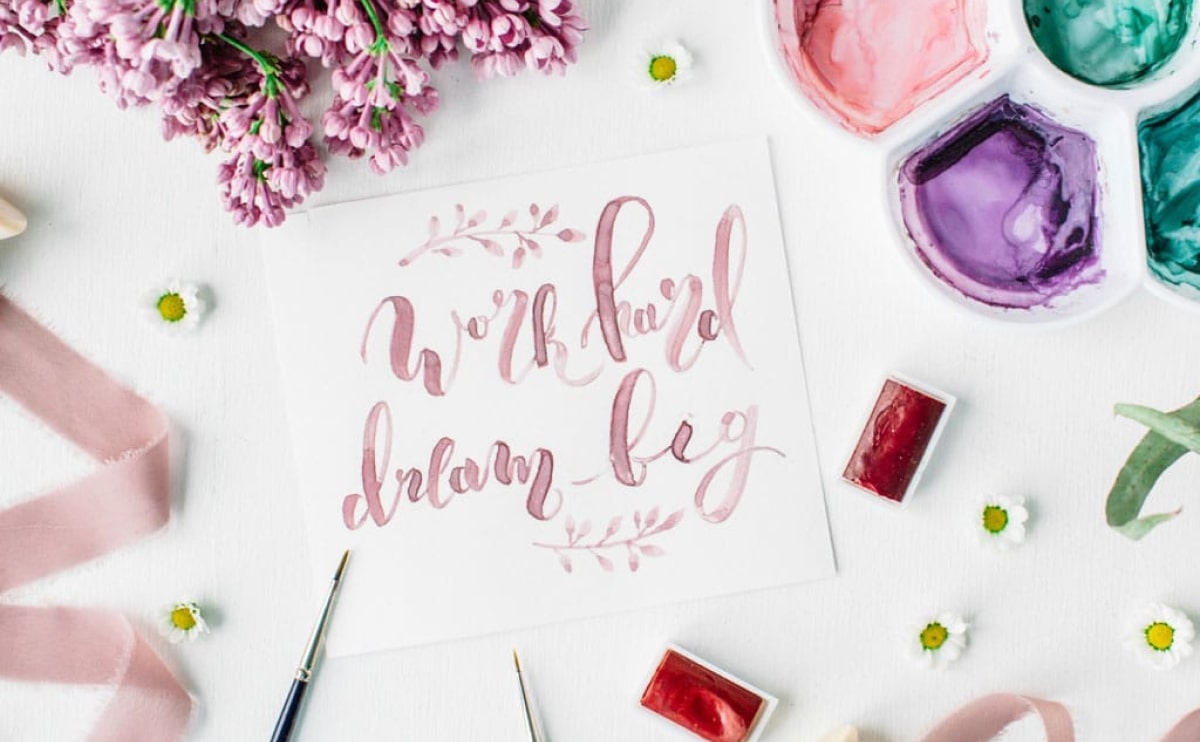 Work hard
dream big